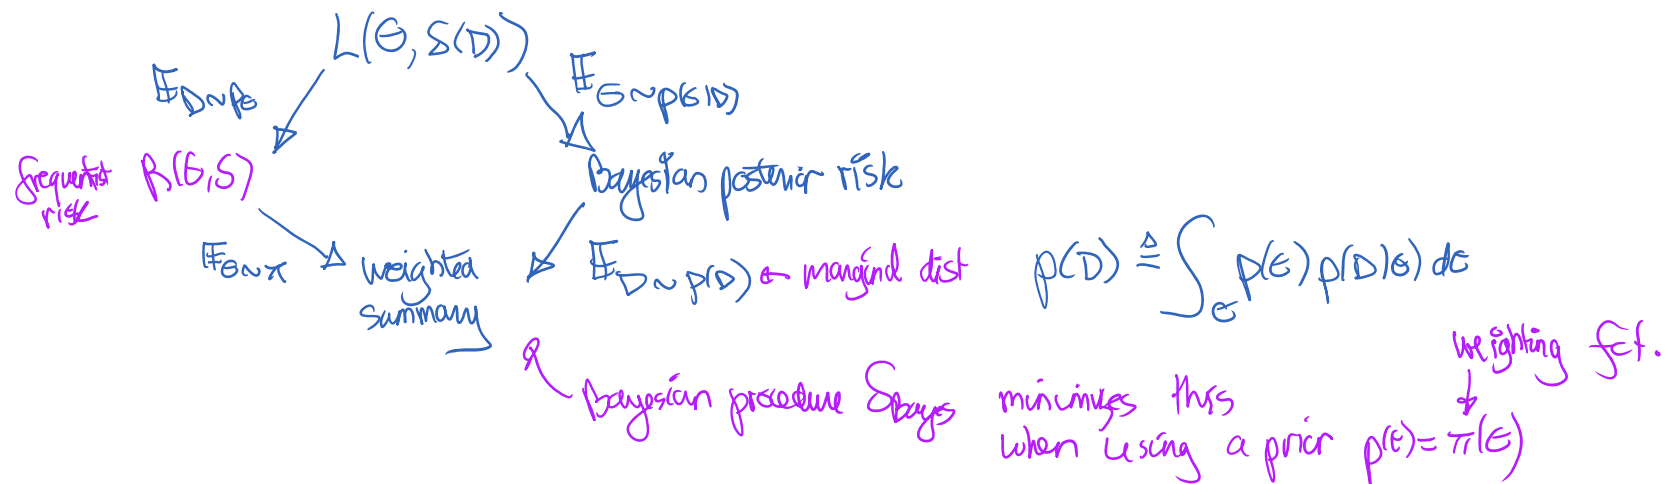 L(θ, δ(D))
𝔼_{D∼p_θ}
𝔼_{θ∼p(θ|D)}
frequentist
risk
R(θ,δ)
Bayesian posterior risk
𝔼_{θ∼π}
weighted
summary
𝔼_{D∼p(D)} ← marginal dist
p(D) ≜ ∫_θ p(θ) p(D|θ) dθ
weighting fct.
Bayesian procedure δ_{Bayes} minimizes this
when using a prior p(θ) = π(θ)